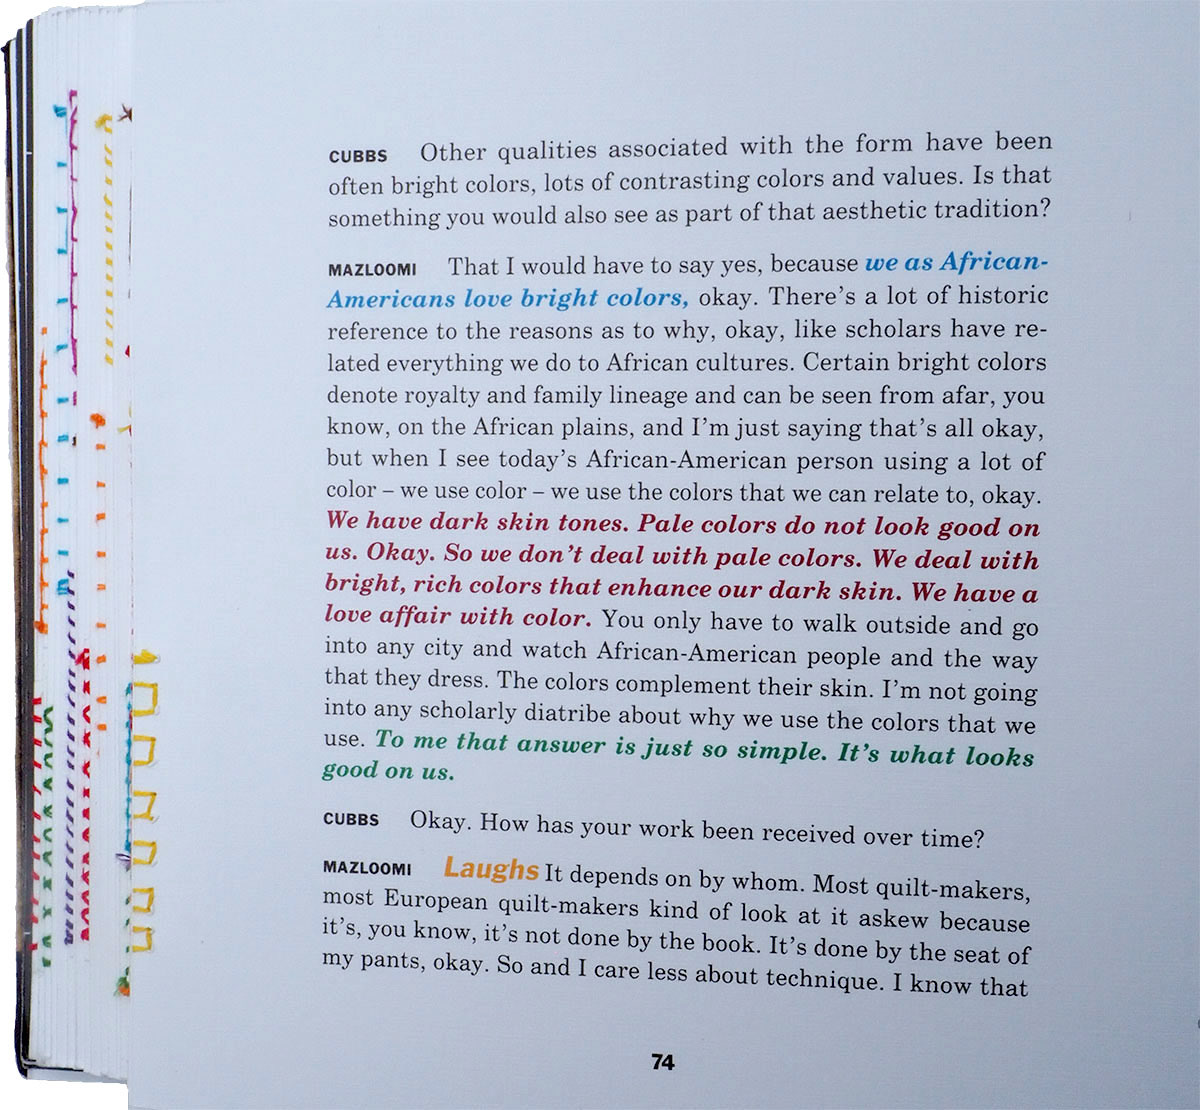 CUBBS Other qualities associated with the form have been
often bright colors, lots of contrasting colors and values. Is that
something you would also see as part of that aesthetic tradition?
MAZLOOMI That I would have to say yes, because we as African-
Americans love bright colors, okay. There's a lot of historic
reference to the reasons as to why, okay, like scholars have re-
lated everything we do to African cultures. Certain bright colors
denote royalty and family lineage and can be seen from afar, you
know, on the African plains, and I'm just saying that's all okay,
but when I see today's African-American person using a lot of
color – we use color – we use the colors that we can relate to, okay.
We have dark skin tones. Pale colors do not look good on
us. Okay. So we don't deal with pale colors. We deal with
bright, rich colors that enhance our dark skin. We have a
love affair with color. You only have to walk outside and go
into any city and watch African-American people and the way
that they dress. The colors complement their skin. I'm not going
into any scholarly diatribe about why we use the colors that we
use. To me that answer is just so simple. It's what looks
good on us.
CUBBS Okay. How has your work been received over time?
MAZLOOMI Laughs It depends on by whom. Most quilt-makers,
most European quilt-makers kind of look at it askew because
it's, you know, it's not done by the book. It's done by the seat of
my pants, okay. So and I care less about technique. I know that
74